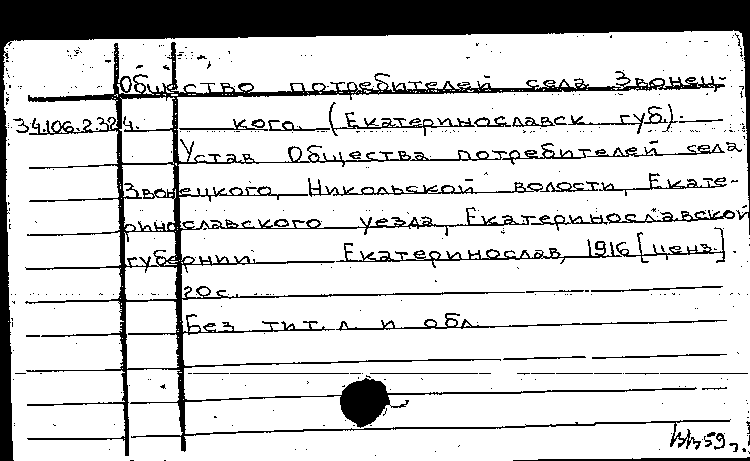 Общество потребителей села Звонец-
34.106.2324. кого. (Екатеринославск. губ.).
Устав Общества потребителей села
Звонецкого, Никольской волости, Екате-
ринославского уезда, Екатеринославской
губернии. Екатеринослав, 1916 [ценз.].
20 с.
Без тит. л. и обл.